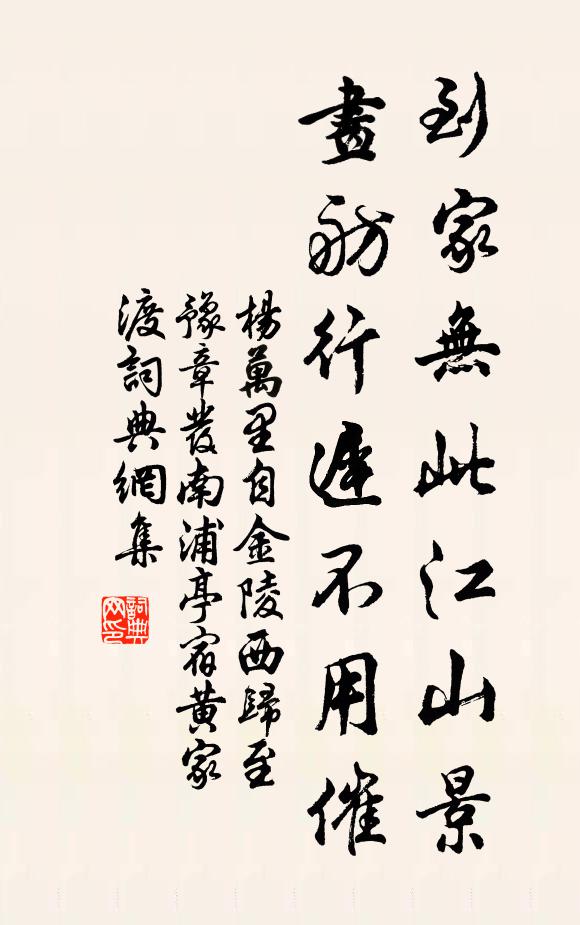 到家無此江山景
畫舫行遲不用催
楊萬里自金陵西歸至
豫章發南浦亭宿黃家
渡詞典網集
詞典
网印